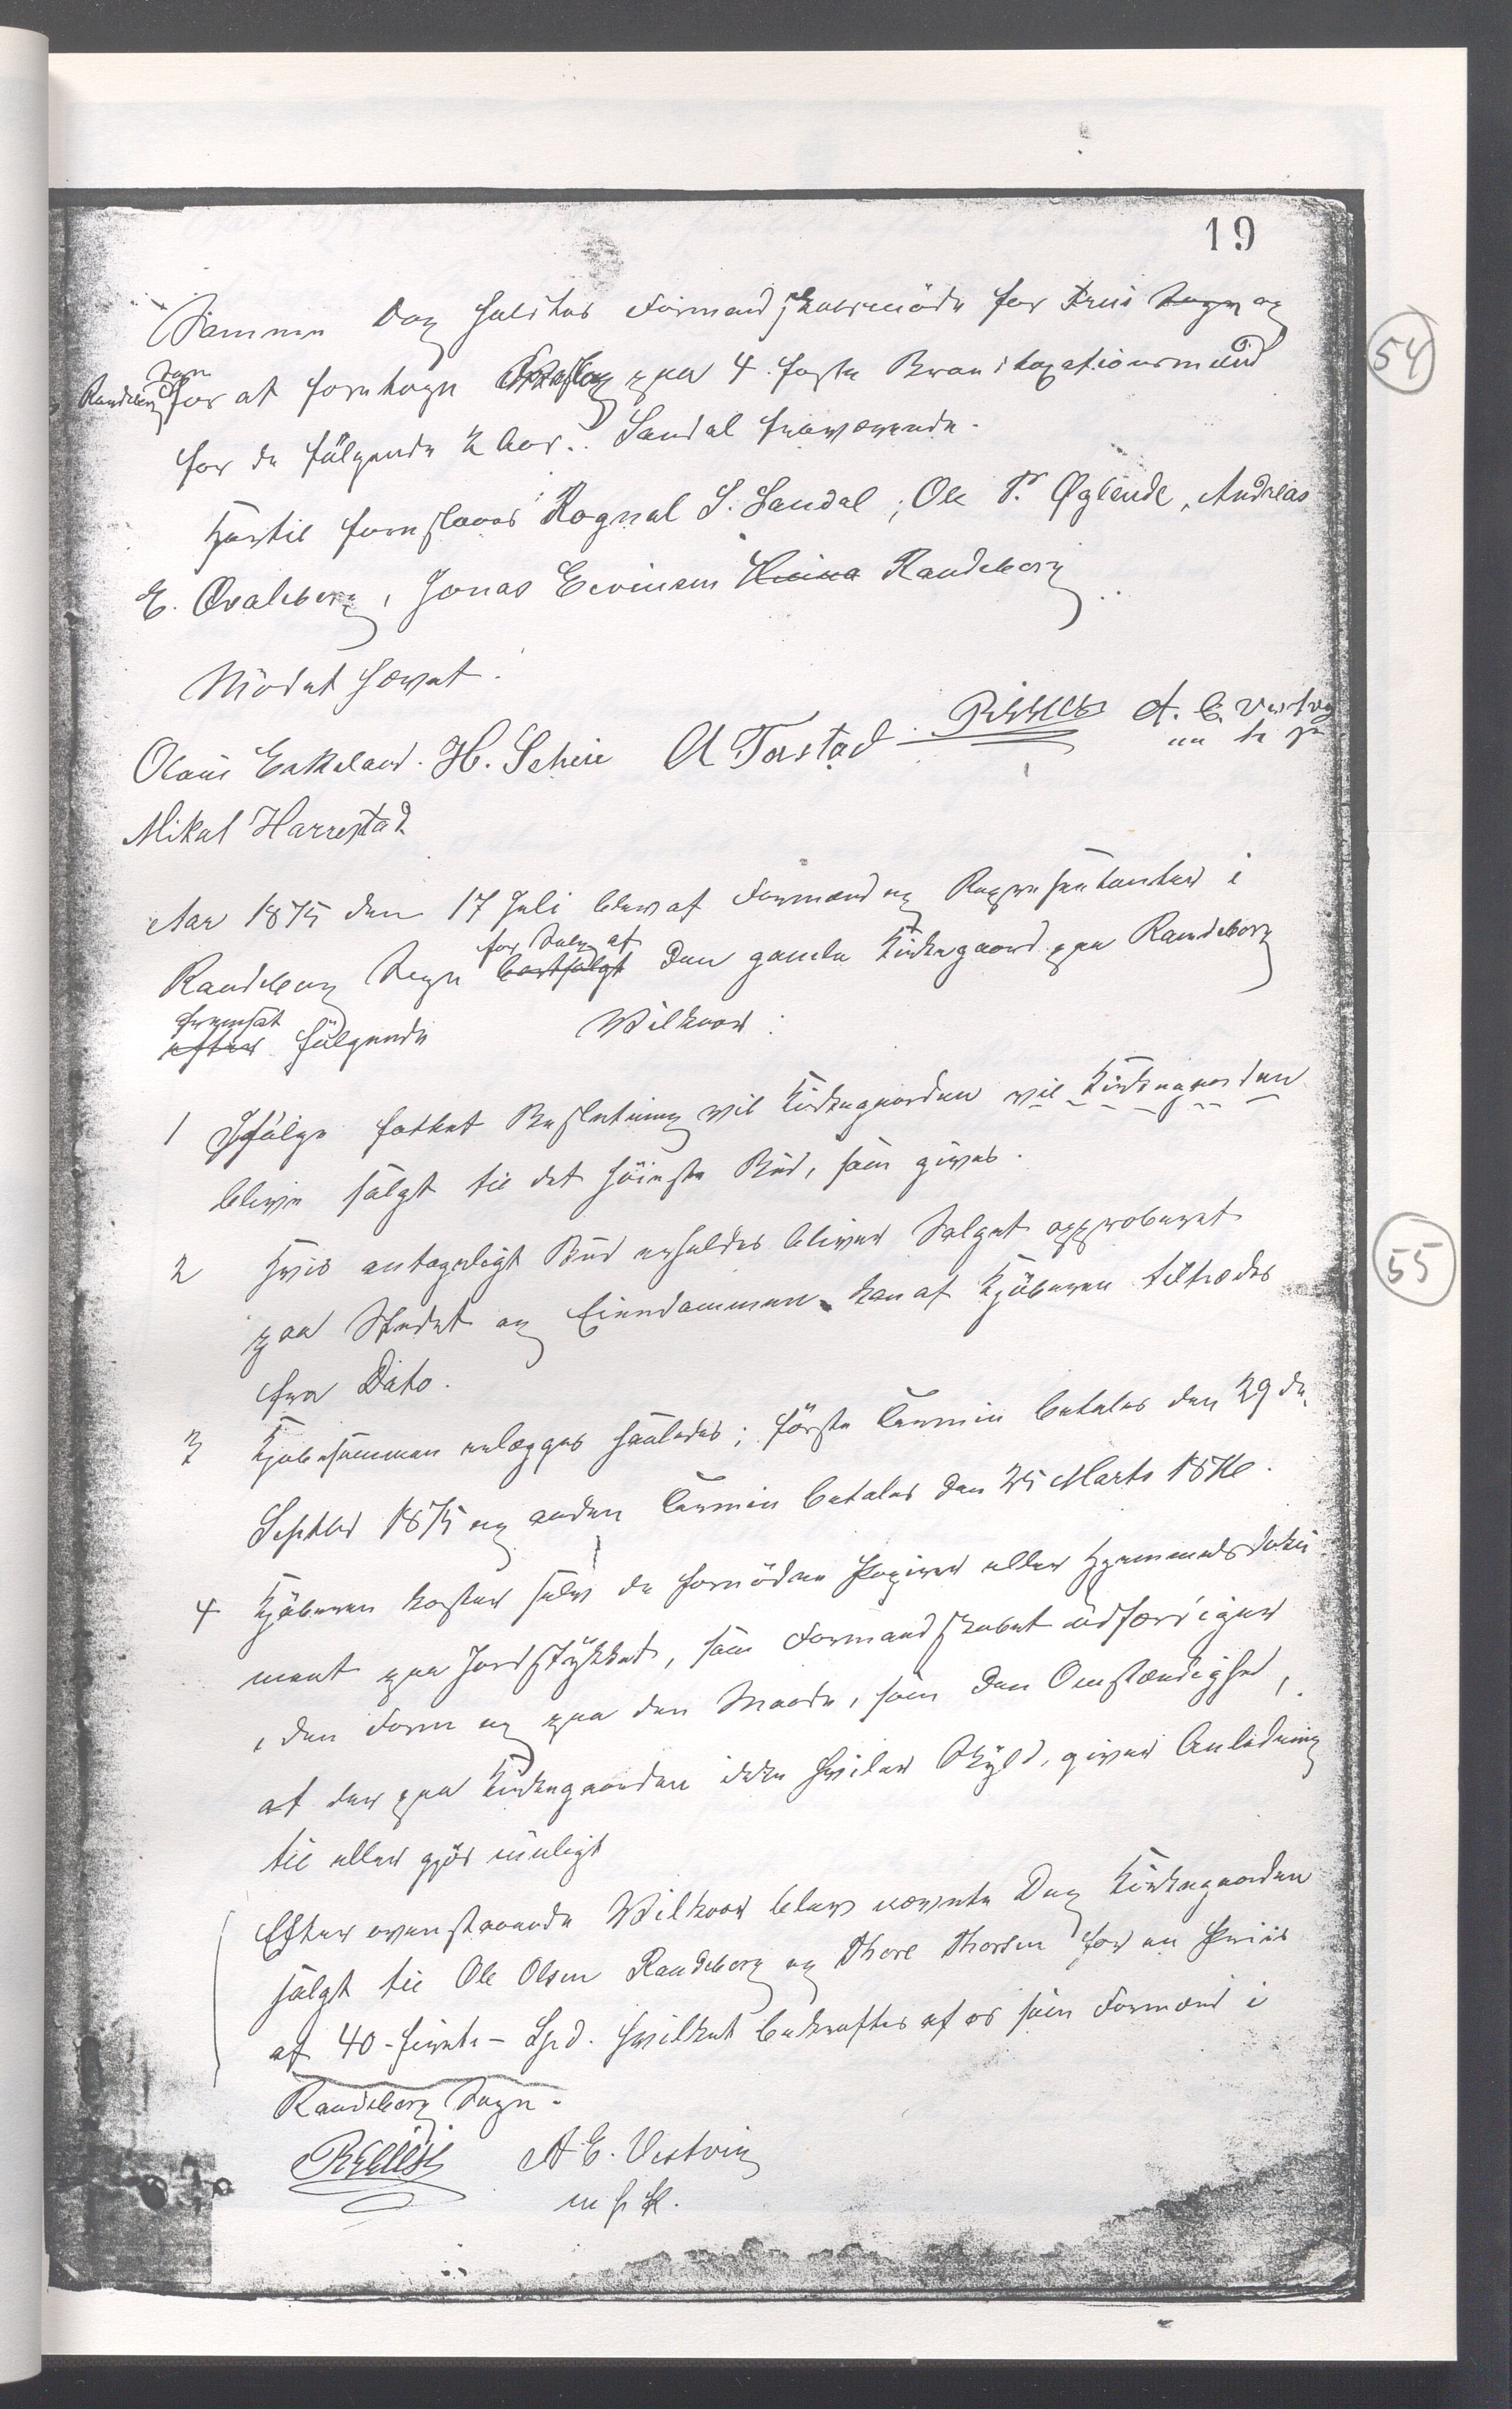 19
Samme Dag holdtes Formandskabsmöde for Sogn og
Randeberg Sogn for at foretage Forslag paa 4 faste Brandtaxationsmænd
for de fölgende 2 Aar. Sandal fraværende.
Hertil foresloges Rognal S. Sandal, Ole P. Øglende, Andreas
E. Qvaleberg, Jonas Eevinsen Randeberg
Mödet hævet.
Olaus Eskeland. H. Scheie A Torstad A. E. Vestvig
m. f. p.
Mikal Harrestad
54
Aar 1875 den 17 Juli blev af Formænd og Repræsentanter i
Randeberg Sogn bortsolgt for Salg af den gamle Kirkegaard paa Randeberg
efter fremsat fölgende Vilkaar:
1 Ifölge fattet Beslutning vil Kirkegaarden vil Kirkegaarden
blive solgt til det höieste Bud, som gives.
2 Hvis antageligt Bud erholdes bliver Salget approberet
paa Stedet og Eiendommen kan af Kjöberen tiltrædes
fra Dato.
55
3 Kjöbesummen erlægges saaledes; förste Termin betales den 29de
Septbr 1875 og anden Termin betales den 25 Marts 1876.
4 Kjöberen koster selv de fornödne Papirer eller Hjemmelsdoku
ment paa Jordstykket, som Formandskabet udfærdiger
i den Form og paa den Maade, som den Omstændighed,
at der paa Kirkegaarden ikke hviler Skyld, giver Anledning
til eller gjör muligt
Efter ovenstaaende Vilkaar blev nævnte Dag Kirkegaarden
solgt til Ole Olsen Randeberg og Thore Thorsen for en Priis
af 40 - firti - Spd. hvilket bekræftes af os som Formænd i
Randeberg Sogn.
A E. Vestvig
m. f. P.